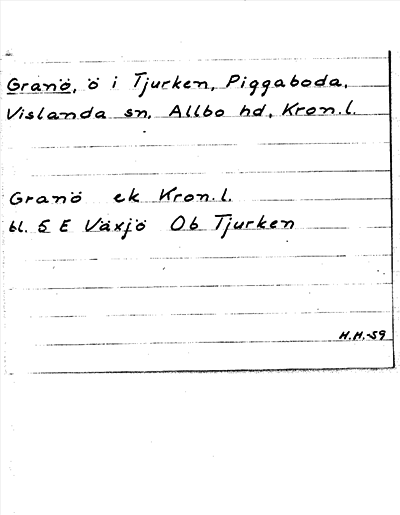 Granö, ö i Tjurken, Piggaboda,
Vislanda sn, Allbo hd, Kron.l.
Granö ek Kron.l.
bl. 5 E Växjö Ob Tjurken
H.H.-59